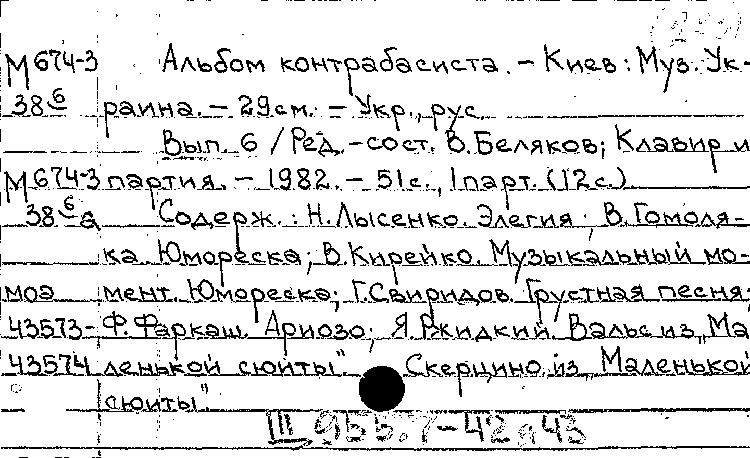 М 674-3 Альбом контрабасиста. – Киев : Муз. Ук-
38 б раина. – 29 см. – Укр., рус
Вып. 6 / Ред.-сост. В. Беляков; Клавир и
М 674-3 партия. – 1982. – 51 с., 1 парт. (12 с.)
38 б а Содерж.: Н. Лысенко. Элегия; В. Гомоля-
ка. Юмореска; В. Кирейко. Музыкальный мо-
моа мент. Юмореска; Г. Свиридов. Грустная песня;
43573- Ф. Фаркаш. Ариозо; Я. Ржидкий. Вальс из „Ма
43574 ленькой сюиты". Скерцино из „Маленькой
сюиты".
III 955.7-42 д 43